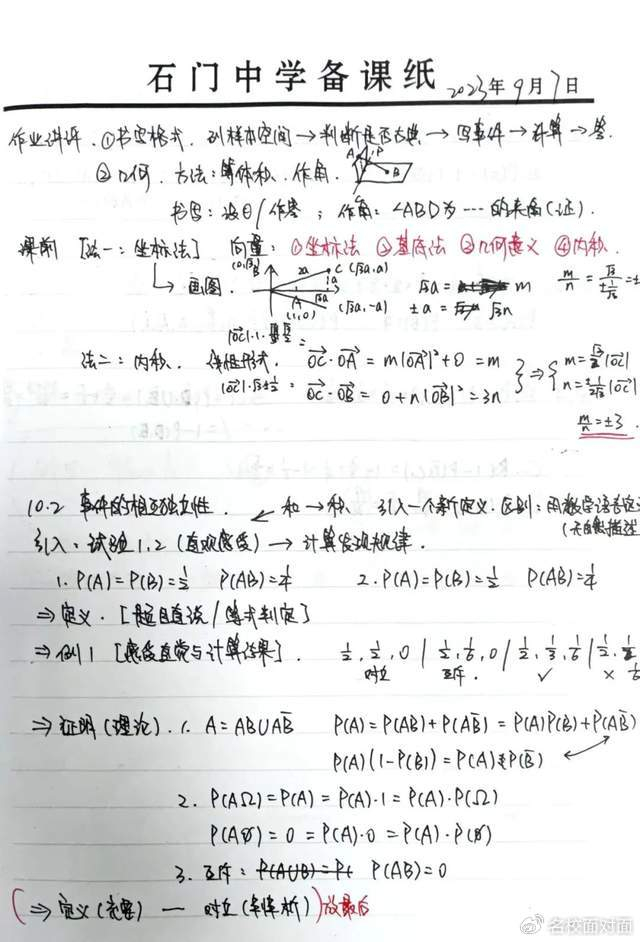 石门中学备课纸 2023年9月7日
作业讲评.①书写格式.列样本空间→判断是否古典→写事件→计算→答.
②几何.方法:等体积.作角.
A P B
书写:设θ/作答;作角:∠ABD为…的夹角(证).
课前[法一:坐标法] 向量:①坐标法 ②基底法 ③几何意义 ④内积.
↳画图. B 2a C(√3a,a) a √3a = m m/n =
A (1,0) √3a (√3a,-a) ±a = √3n
法二:内积. OC·OA = m|OA|²+0 = m
OC·OB = 0+n|OB|² = 3n
m/n = ±3.
10.2 事件的相互独立性. ↙ 和→积. 引入一个新定义.区别:用数学语言定
引入:试验1.2(直观感受)→计算发现规律.
1.P(A)=P(B)=1/2 P(AB)=1/4 2.P(A)=P(B)=1/2 P(AB)=1/4
⇒定义.[题目直说/等式判定]
⇒例1[感受直觉与计算结果]. 1/2,1/2,0 | 1/2,1/6,0 | 1/2,1/3,1/6 | 1/2,
对立 互斥. ✓ ×
⇒证明(理论).1.A=AB∪AB̄ P(A)=P(AB)+P(AB̄)=P(A)P(B)+P(AB̄)
P(A)(1-P(B))=P(A)P(B̄)
2.P(AΩ)=P(A)=P(A)·1=P(A)·P(Ω)
P(A∅)=0=P(A)·0=P(A)·P(∅)
3.互斥:P(A∪B)=P( P(AB)=0
(⇒定义(完整)— 对立 )放最后
@名校面对面